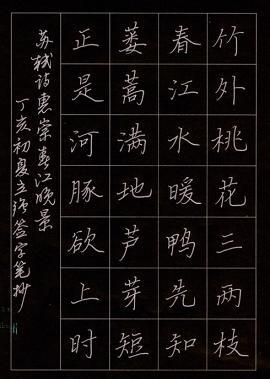 竹外桃花三两枝
春江水暖鸭先知
蒌蒿满地芦芽短
正是河豚欲上时
苏轼诗惠崇春江晓景
丁亥初夏立强签字笔抄